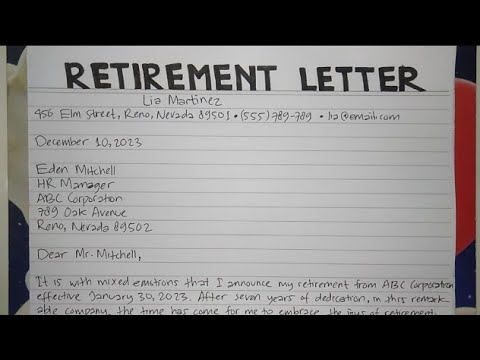 RETIREMENT LETTER
Lia Martinez
456 Elm Street, Reno, Nevada 89501 • (555) 789-789 • lia@email.com
December 10, 2023
Eden Mitchell
HR Manager
ABC Corporation
789 Oak Avenue
Reno, Nevada 89502
Dear Mr. Mitchell,
It is with mixed emotions that I announce my retirement from ABC Corporation
effective January 30, 2023. After seven years of dedication, in this remark-
able company, the time has come for me to embrace the joys of retirement.